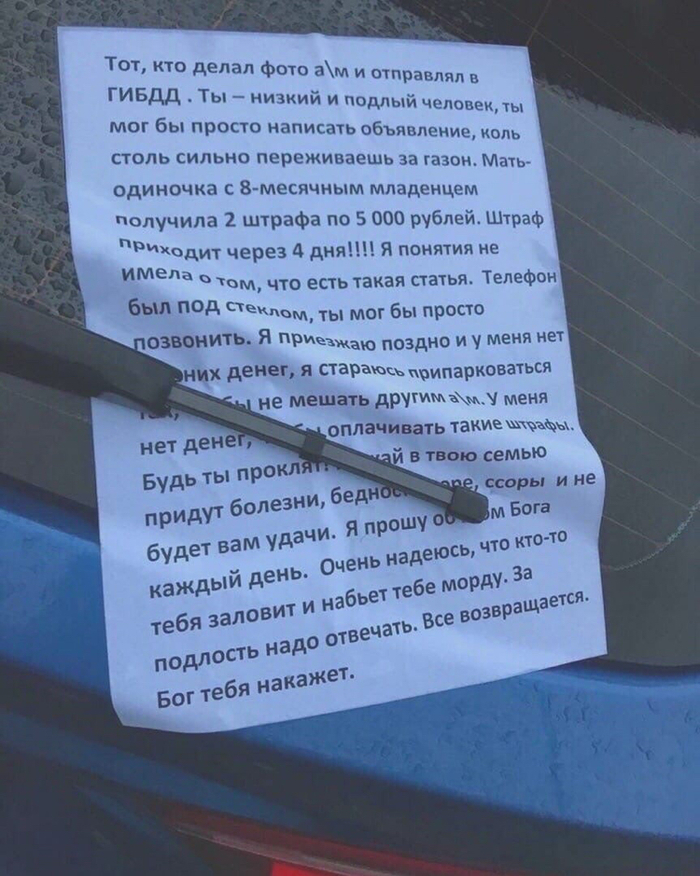 Тот, кто делал фото а\м и отправлял в
ГИБДД . Ты – низкий и подлый человек, ты
мог бы просто написать объявление, коль
столь сильно переживаешь за газон. Мать-
одиночка с 8-месячным младенцем
получила 2 штрафа по 5 000 рублей. Штраф
приходит через 4 дня!!!! Я понятия не
имела о том, что есть такая статья. Телефон
был под стеклом, ты мог бы просто
позвонить. Я приезжаю поздно и у меня нет
денег, я стараюсь припарковаться
не мешать другим а\м. У меня
нет денег, оплачивать такие штрафы.
Будь ты проклят! в твою семью
придут болезни, ссоры и не
будет вам удачи. Я прошу об Бога
каждый день. Очень надеюсь, что кто-то
тебя заловит и набьет тебе морду. За
подлость надо отвечать. Все возвращается.
Бог тебя накажет.